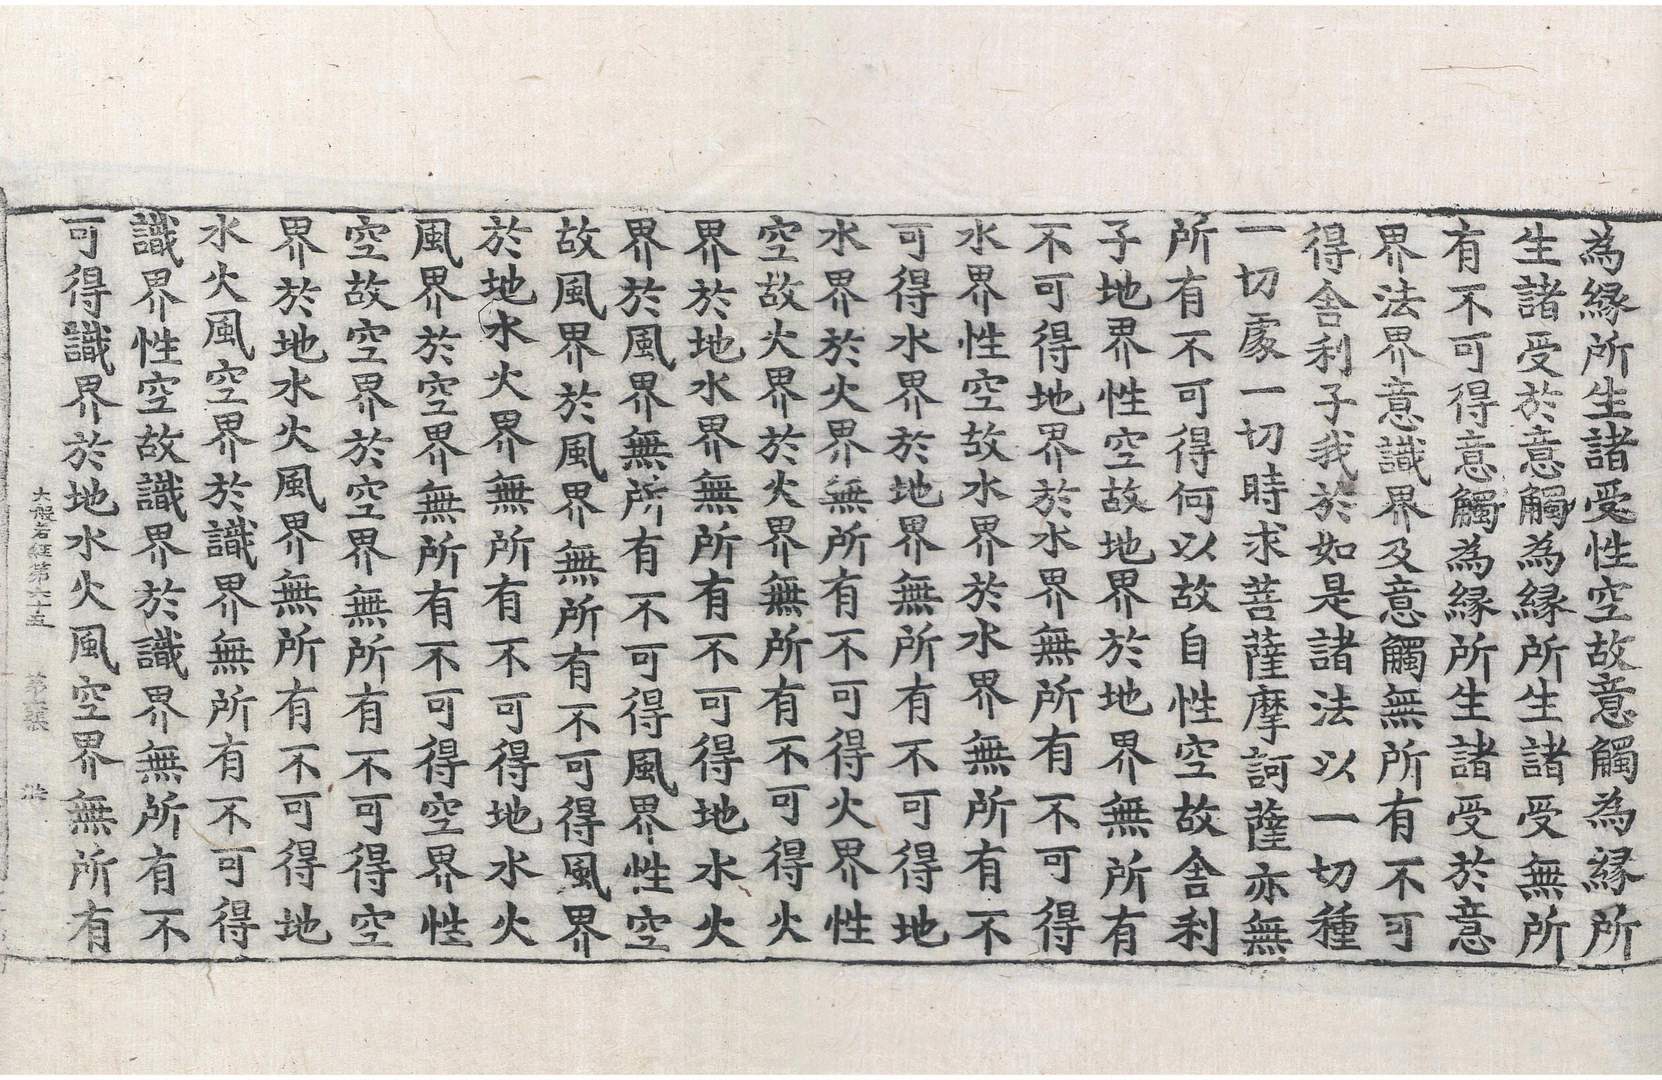 為緣所生諸受性空故意觸為緣所
生諸受於意觸為緣所生諸受無所
有不可得意觸為緣所生諸受於意
界法界意識界及意觸無所有不可
得舍利子我於如是諸法以一切種
一切處一切時求菩薩摩訶薩亦無
所有不可得何以故自性空故舍利
子地界性空故地界於地界無所有
不可得地界於水界無所有不可得
水界性空故水界於水界無所有不
可得水界於地界無所有不可得地
水界於火界無所有不可得火界性
空故火界於火界無所有不可得火
界於地水界無所有不可得地水火
界於風界無所有不可得風界性空
故風界於風界無所有不可得風界
於地水火界無所有不可得地水火
風界於空界無所有不可得空界性
空故空界於空界無所有不可得空
界於地水火風界無所有不可得地
水火風空界於識界無所有不可得
識界性空故識界於識界無所有不
可得識界於地水火風空界無所有
大般若経第六十五